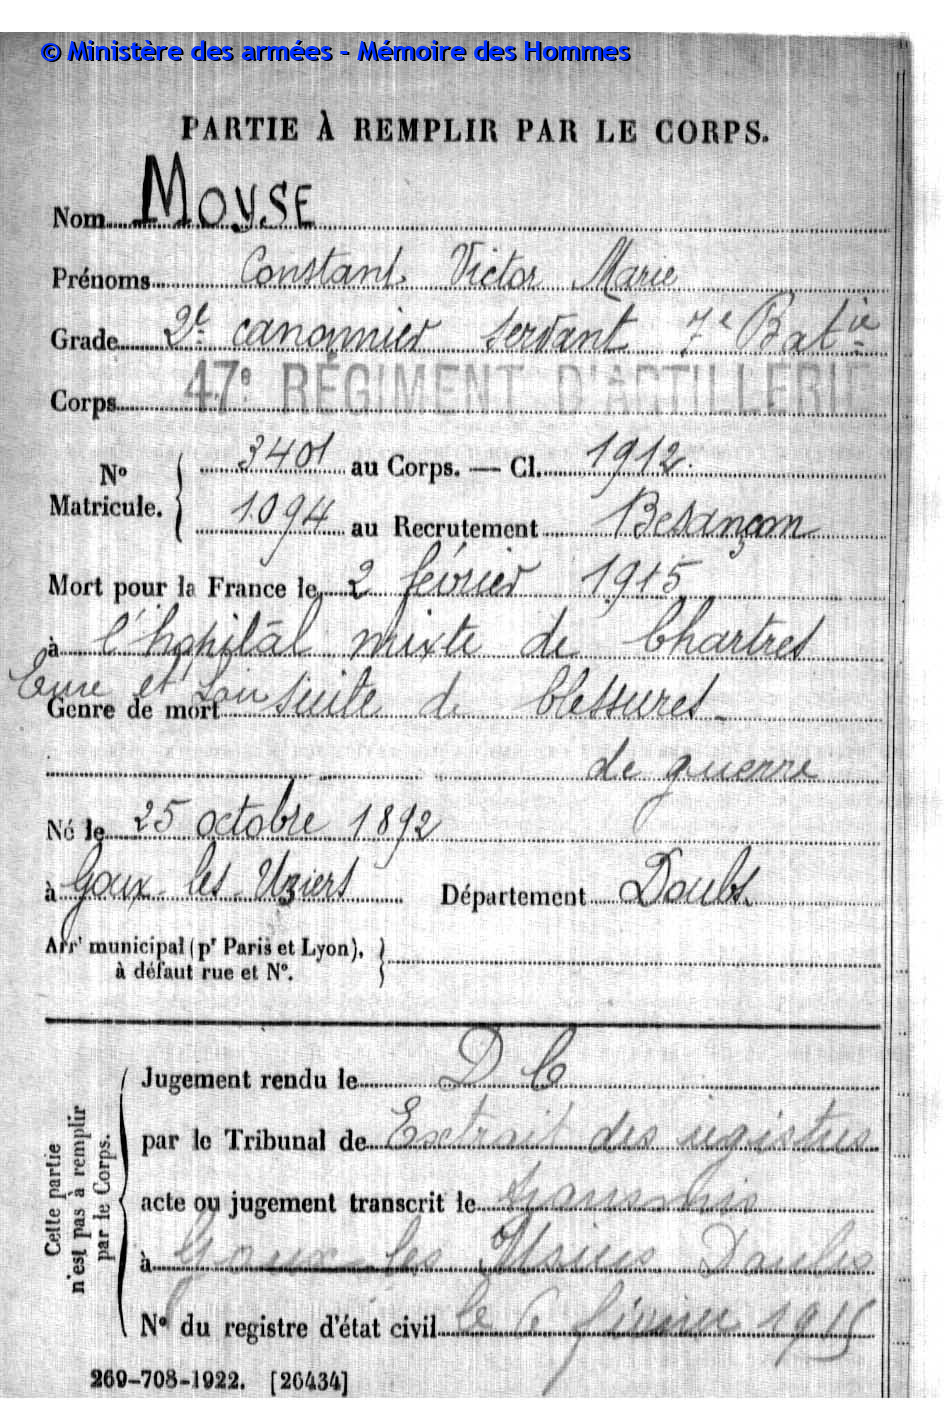 © Ministère des armées - Mémoire des Hommes
PARTIE À REMPLIR PAR LE CORPS.
Nom MOYSE
Prénoms Constant Victor Marie
Grade 2e canonnier servant 7e Batie
Corps 47e RÉGIMENT D'ARTILLERIE
No Matricule. 3401 au Corps. — Cl. 1912.
1094 au Recrutement Besançon
Mort pour la France le 2 février 1915
à l'hôpital mixte de Chartres
Eure et Loir
Genre de mort suite de blessures
de guerre
Né le 25 octobre 1892
à Goux les Uziers Département Doubs
Arrt municipal (pr Paris et Lyon),
à défaut rue et No.
Cette partie n'est pas à remplir par le Corps.
Jugement rendu le D C
par le Tribunal de Extrait des registres
acte ou jugement transcrit le transmis
à Goux les Usiers Doubs
No du registre d'état civil le 6 février 1915
269-708-1922. [26434]